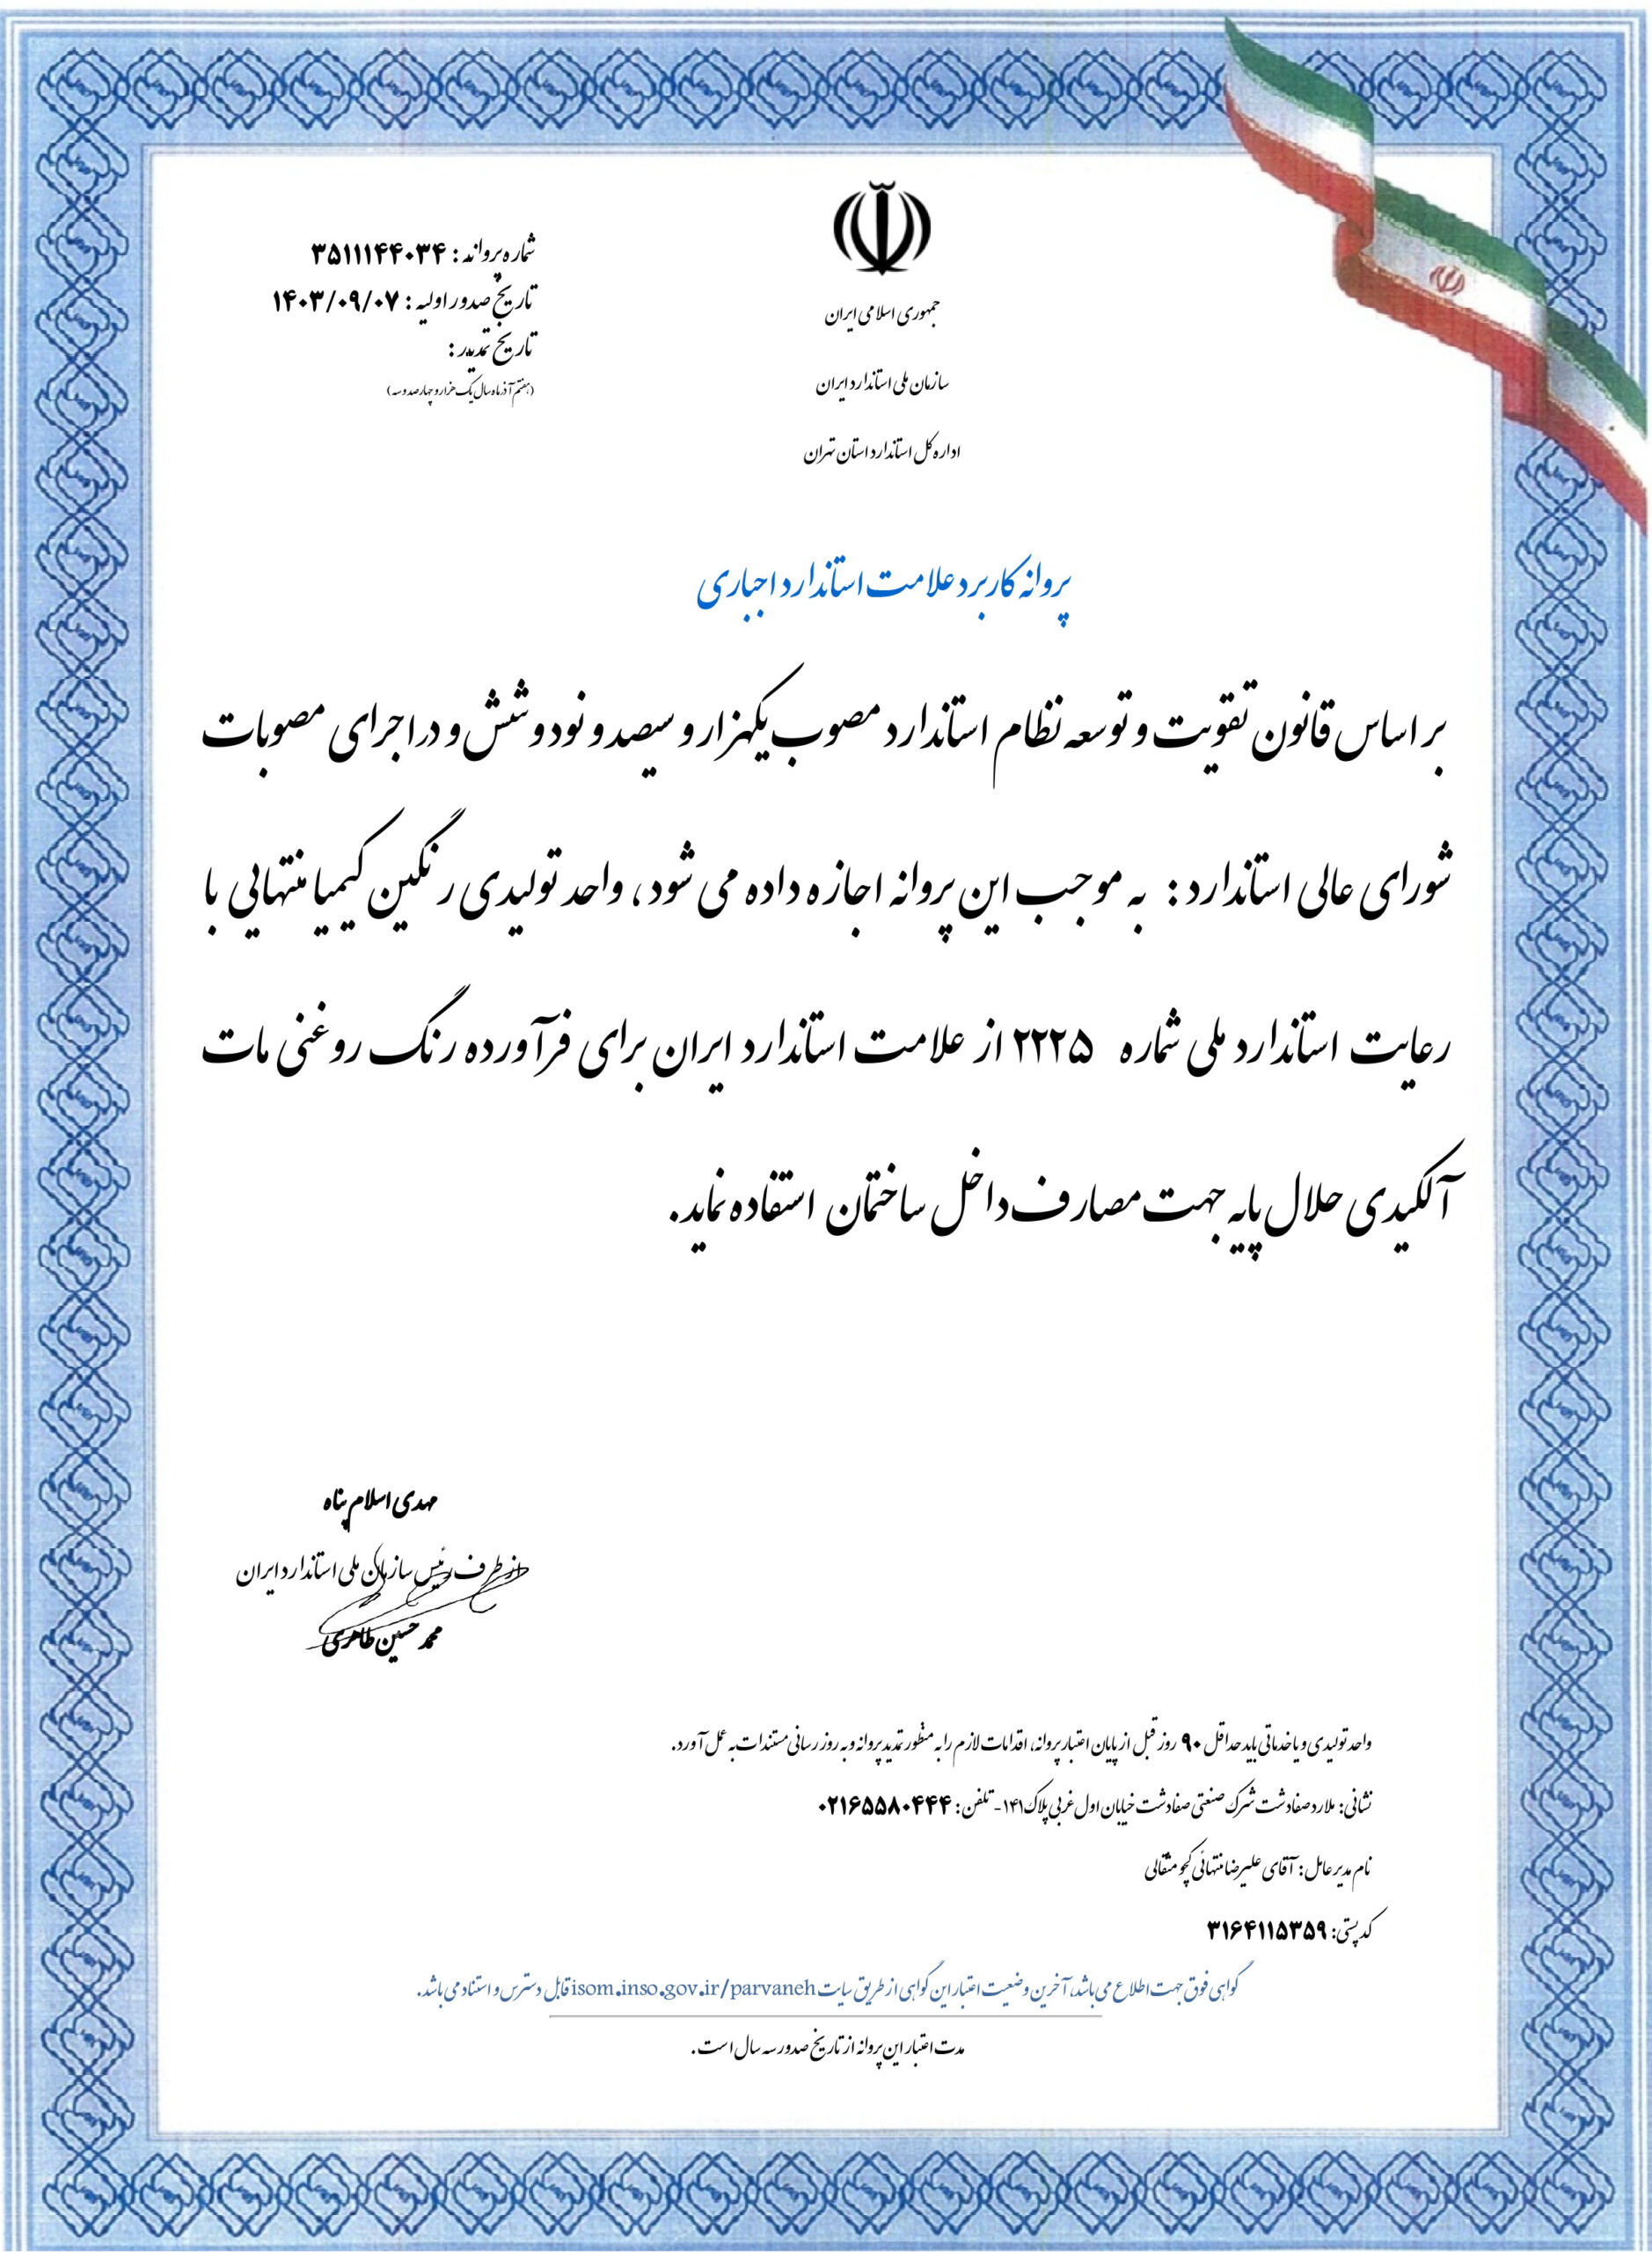 جمهوری اسلامی ایران
سازمان ملی استاندارد ایران
اداره کل استاندارد استان تهران
شماره پروانه : ۳۵۱۱۱۴۴۰۳۴
تاریخ صدور اولیه : ۱۴۰۳/۰۹/۰۷
تاریخ تمدید :
(هفتم آذر ماه سال یک هزار و چهارصد و سه)
پروانه کاربرد علامت استاندارد اجباری
بر اساس قانون تقویت و توسعه نظام استاندارد مصوب یکهزار و سیصد و نود و شش و در اجرای مصوبات
شورای عالی استاندارد : به موجب این پروانه اجازه داده می شود، واحد تولیدی رنگین کیمیا منتهایی با
رعایت استاندارد ملی شماره ۲۲۲۵ از علامت استاندارد ایران برای فرآورده رنگ روغنی مات
آلکیدی حلال پایه جهت مصارف داخل ساختمان استفاده نماید.
مهدی اسلام پناه
از طرف رئیس سازمان ملی استاندارد ایران
محمد حسین طاهری
واحد تولیدی و یا خدماتی باید حداقل ۹۰ روز قبل از پایان اعتبار پروانه، اقدامات لازم را به منظور تمدید پروانه و به روز رسانی مستندات به عمل آورد.
نشانی: ملارد صفادشت شهرک صنعتی صفادشت خیابان اول غربی پلاک ۱۴۱ - تلفن: ۰۲۱۶۵۵۸۰۴۴۴
نام مدیر عامل: آقای علیرضا منتهائی کچو مثقالی
کد پستی: ۳۱۶۴۱۱۵۳۵۹
گواهی فوق جهت اطلاع می باشد، آخرین وضعیت اعتبار این گواهی از طریق سایت isom.inso.gov.ir/parvaneh قابل دسترس و استناد می باشد.
مدت اعتبار این پروانه از تاریخ صدور سه سال است.